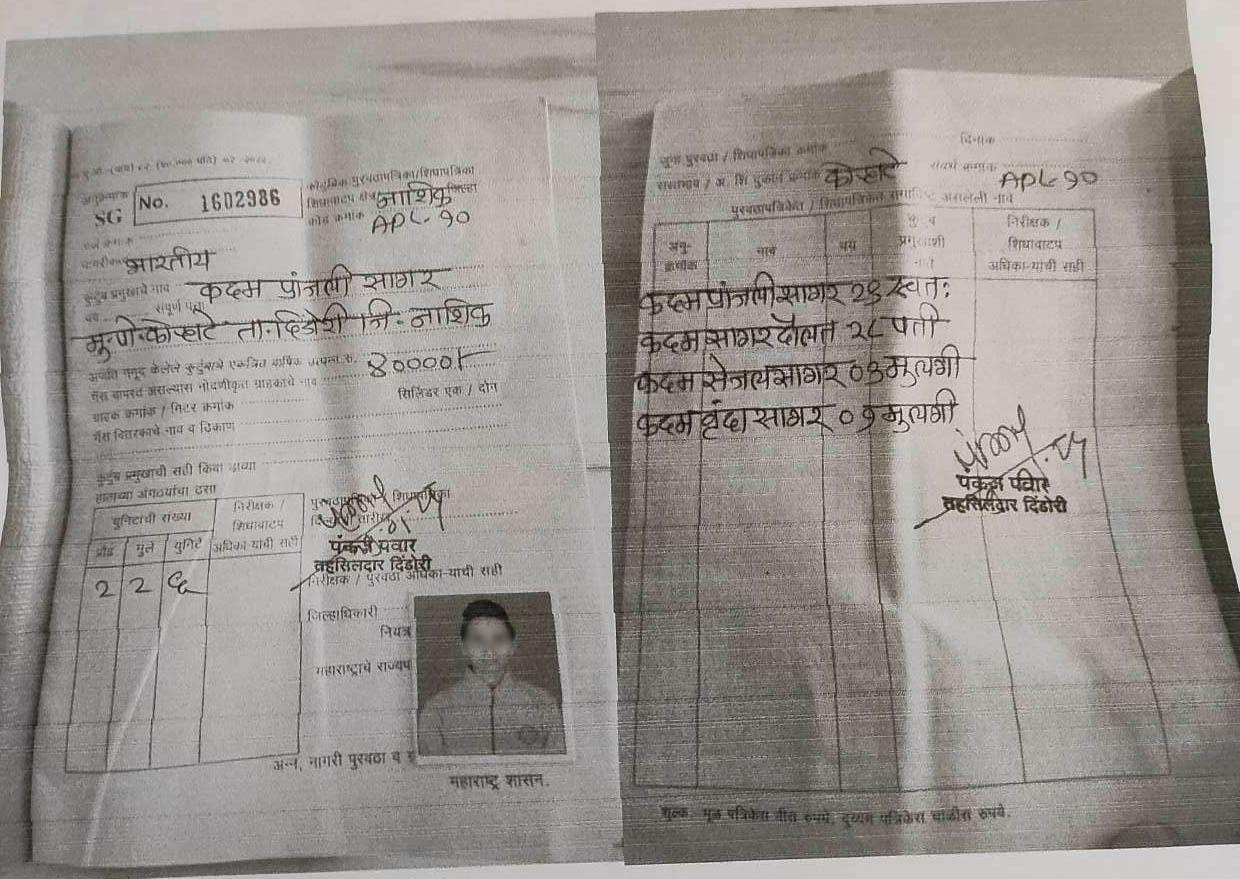 अनुक्रमांक
SG No. 1602986
कौटुंबिक पुरवठापत्रिका/शिधापत्रिका
शिधावाटप क्षेत्र नाशिक जिल्हा
कोड क्रमांक APL-१०
अर्ज क्रमांक
भारतीय
कुटुंब प्रमुखाचे नाव कदम प्रांजली सागर
वय संपूर्ण पत्ता
मु.पो.कोऱ्हाटे ता.दिंडोरी जि.नाशिक
गॅस वापरत असल्यास नोंदणीकृत ग्राहकाचे नाव
सिलिंडर एक / दोन
ग्राहक क्रमांक / मिटर क्रमांक
गॅस वितरकाचे नाव व ठिकाण
कुटुंब प्रमुखाची सही किंवा डाव्या
हाताच्या अंगठ्याचा ठसा
युनिटांची संख्या
निरीक्षक /
शिधावाटप
अधिका-याची सही
प्रौढ मुले युनिटे
2 2 ६
पंकज पवार
तहसिलदार दिंडोरी
निरीक्षक / पुरवठा अधिका-याची सही
जिल्हाधिकारी
नियंत्र
महाराष्ट्राचे राज्यप
अन्न, नागरी पुरवठा व
महाराष्ट्र शासन.
दिनांक
जुना पुरवठा / शिधापत्रिका क्रमांक
कोऱ्हाटे
संदर्भ क्रमांक APL १०
पुरवठापत्रिकेत / शिधापत्रिकेत समाविष्ट असलेली नावे
अनु-
क्रमांक
नाव
वय
प्रमुखाशी
निरीक्षक /
शिधावाटप
अधिका-याची सही
कदम प्रांजली सागर स्वतः
कदम सागर दौलत २८ पती
कदम सेजल सागर मुलगी
कदम वृंदा सागर मुलगी
पंकज पवार
तहसिलदार दिंडोरी
शुल्क, मूळ पत्रिकेस वीस रुपये, दुय्यम पत्रिकेस चाळीस रुपये.